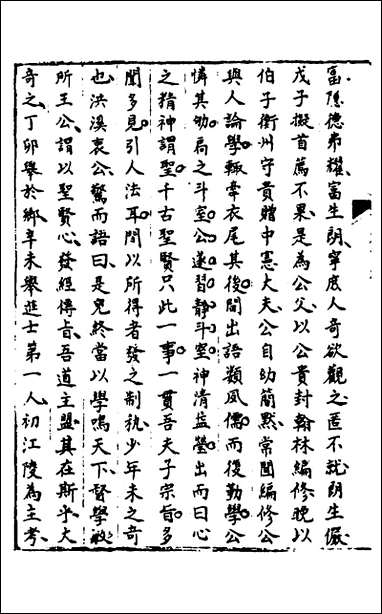 富隱德弟耀富生朗寧庶人奇欲觀之匿不就朗生儼
戊子擬首薦不果是為公父以公貴封翰林編修晚以
伯子衢州守貴贈中憲大夫公自幼簡默常聞編修公
與人論學輒牽衣尾其後間出語類風儒而復勤學公
憐其劬扃之斗室公遂習靜斗室神清益瑩出而曰心
之精神謂聖千古聖賢只此一事一貫吾夫子宗旨多
聞多見引人法耳間以所得者發之制秇少年未之奇
也洪溪衷公驚而語曰是兒終當以學鳴天下督學敏
所王公謂以聖賢心發經傳旨吾道主盟其在斯乎大
奇之丁卯舉於鄉辛未舉進士第一人初江陵為主考